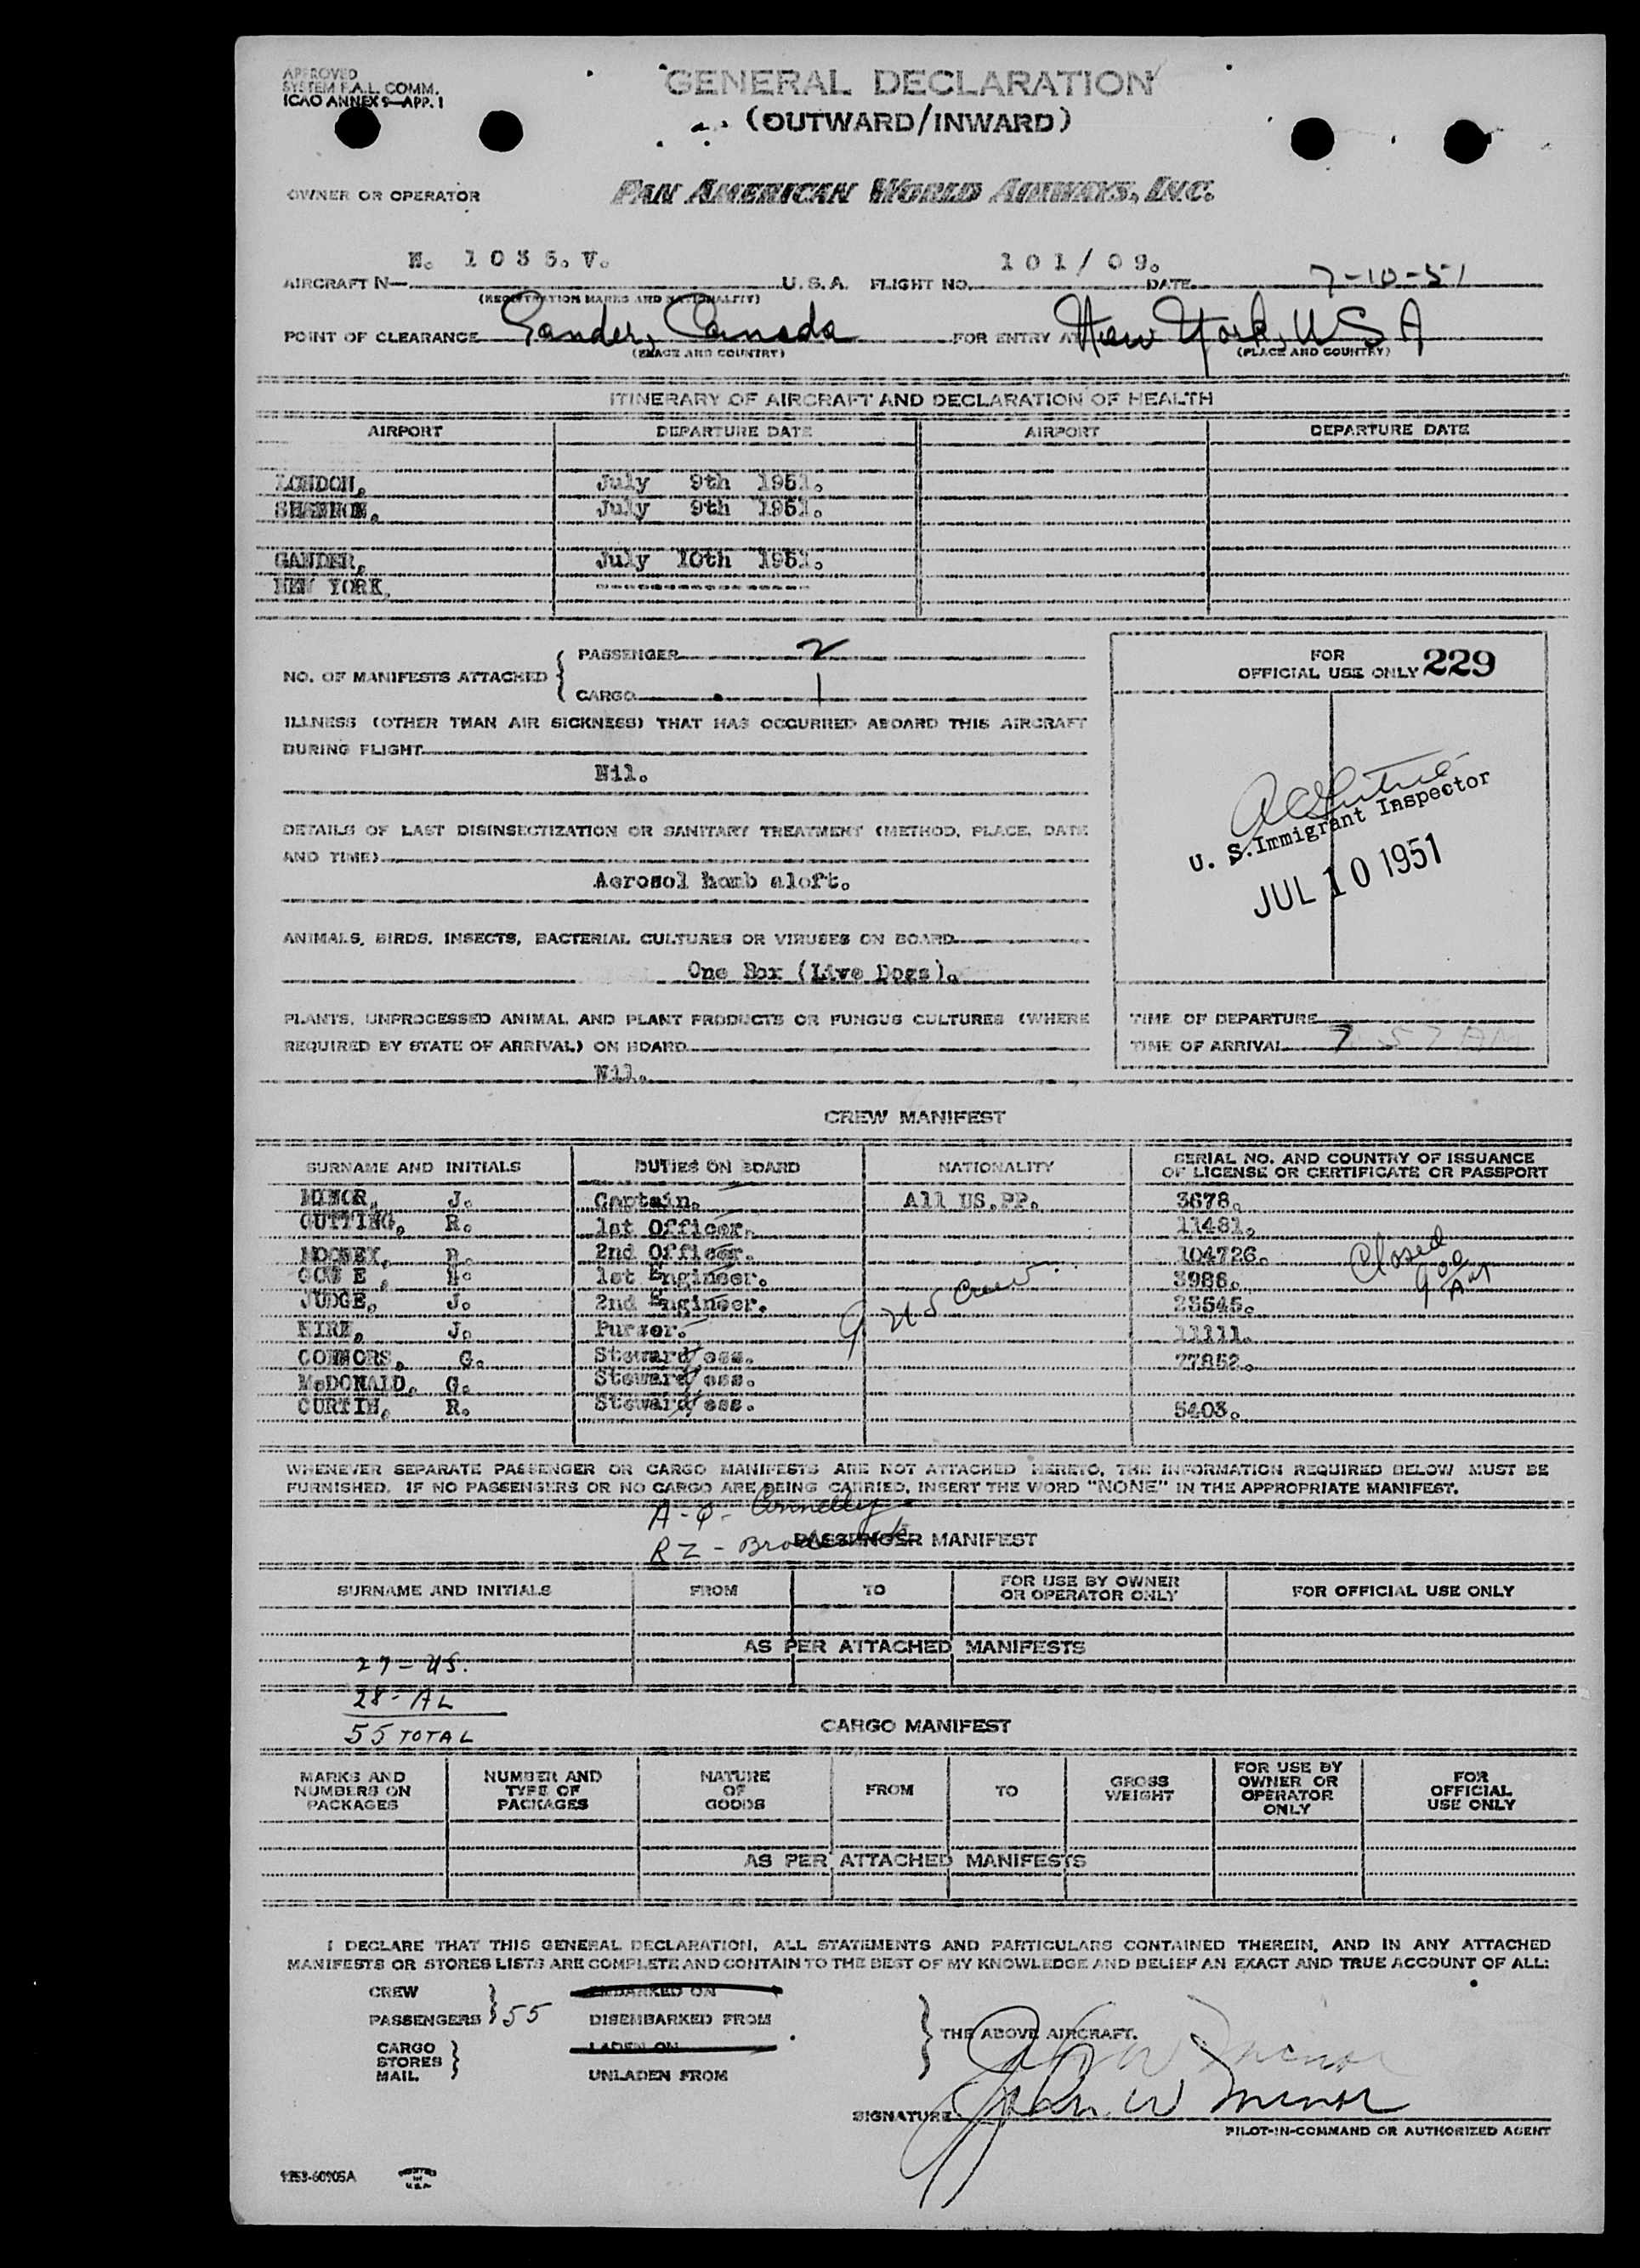 APPROVED
SYSTEM F.A.L. COMM.
ICAO ANNEX 9—APP. 1
GENERAL DECLARATION
(OUTWARD/INWARD)
OWNER OR OPERATOR PAN AMERICAN WORLD AIRWAYS, INC.
N. 1035. V. 101/09.
AIRCRAFT N— U. S. A. FLIGHT NO. DATE 7-10-51
(REGISTRATION MARKS AND NATIONALITY)
POINT OF CLEARANCE Gander, Canada FOR ENTRY AT New York, USA
(PLACE AND COUNTRY) (PLACE AND COUNTRY)
ITINERARY OF AIRCRAFT AND DECLARATION OF HEALTH
AIRPORT DEPARTURE DATE AIRPORT DEPARTURE DATE
LONDON, July 9th 1951.
SHANNON, July 9th 1951.
GANDER, July 10th 1951.
NEW YORK,
NO. OF MANIFESTS ATTACHED { PASSENGER 2
CARGO 1
ILLNESS (OTHER THAN AIR SICKNESS) THAT HAS OCCURRED ABOARD THIS AIRCRAFT
DURING FLIGHT
Nil.
DETAILS OF LAST DISINSECTIZATION OR SANITARY TREATMENT (METHOD, PLACE, DATE
AND TIME)
Aerosol bomb aloft.
ANIMALS, BIRDS, INSECTS, BACTERIAL CULTURES OR VIRUSES ON BOARD
One Box (Live Dogs).
PLANTS, UNPROCESSED ANIMAL AND PLANT PRODUCTS OR FUNGUS CULTURES (WHERE
REQUIRED BY STATE OF ARRIVAL) ON BOARD
Nil.
FOR
OFFICIAL USE ONLY 229
U. S. Immigrant Inspector
JUL 10 1951
TIME OF DEPARTURE
TIME OF ARRIVAL 7 57 AM
CREW MANIFEST
SURNAME AND INITIALS DUTIES ON BOARD NATIONALITY SERIAL NO. AND COUNTRY OF ISSUANCE
OF LICENSE OR CERTIFICATE OR PASSPORT
MINOR, J. Captain. All US.PP. 3678.
GUTTING, R. 1st Officer. 11481.
MOONEY, R. 2nd Officer. 104726.
1st Engineer. 3988.
JUDGE, J. 2nd Engineer. 25545.
KIRK, J. Purser. 11111.
CONNORS, G. Steward/ess. 77852.
McDONALD, G. Steward/ess.
CURTIN, R. Steward/ess. 5403.
9 US Crew
Closed
WHENEVER SEPARATE PASSENGER OR CARGO MANIFESTS ARE NOT ATTACHED HERETO, THE INFORMATION REQUIRED BELOW MUST BE
FURNISHED. IF NO PASSENGERS OR NO CARGO ARE BEING CARRIED, INSERT THE WORD "NONE" IN THE APPROPRIATE MANIFEST.
A-Q- Connelly
RZ -
PASSENGER MANIFEST
SURNAME AND INITIALS FROM TO FOR USE BY OWNER
OR OPERATOR ONLY FOR OFFICIAL USE ONLY
AS PER ATTACHED MANIFESTS
27 - US.
28 - AL
55 TOTAL
CARGO MANIFEST
MARKS AND
NUMBERS ON
PACKAGES NUMBER AND
TYPE OF
PACKAGES NATURE
OF
GOODS FROM TO GROSS
WEIGHT FOR USE BY
OWNER OR
OPERATOR
ONLY FOR
OFFICIAL
USE ONLY
AS PER ATTACHED MANIFESTS
I DECLARE THAT THIS GENERAL DECLARATION, ALL STATEMENTS AND PARTICULARS CONTAINED THEREIN, AND IN ANY ATTACHED
MANIFESTS OR STORES LISTS ARE COMPLETE AND CONTAIN TO THE BEST OF MY KNOWLEDGE AND BELIEF AN EXACT AND TRUE ACCOUNT OF ALL:
CREW EMBARKED ON
PASSENGERS } 55 DISEMBARKED FROM
THE ABOVE AIRCRAFT.
CARGO LADEN ON
STORES
MAIL } UNLADEN FROM
John W Minor
SIGNATURE John W Minor
PILOT-IN-COMMAND OR AUTHORIZED AGENT
1253-60105A PRINTED
IN
U.S.A.